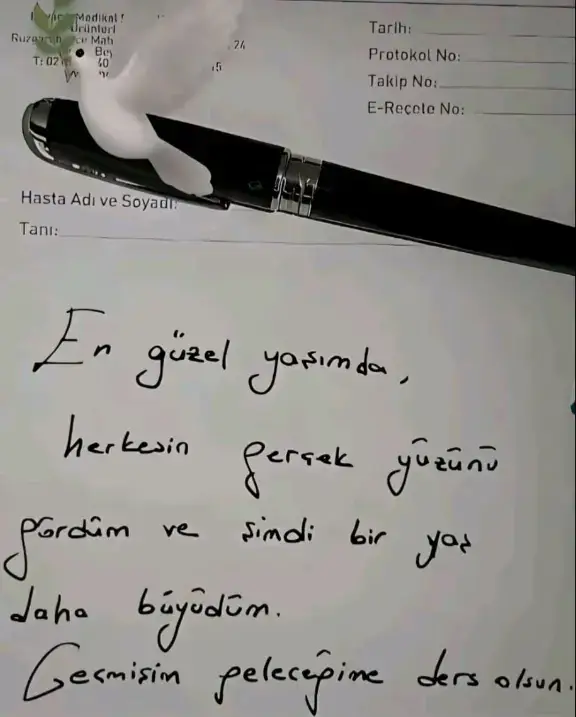 Medikal
Ürünleri
24
Tarih:
Protokol No:
Takip No:
E-Reçete No:
Hasta Adı ve Soyadı:
Tanı:
En güzel yaşımda,
herkesin gerçek yüzünü
gördüm ve şimdi bir yaş
daha büyüdüm.
Geçmişim geleceğime ders olsun.